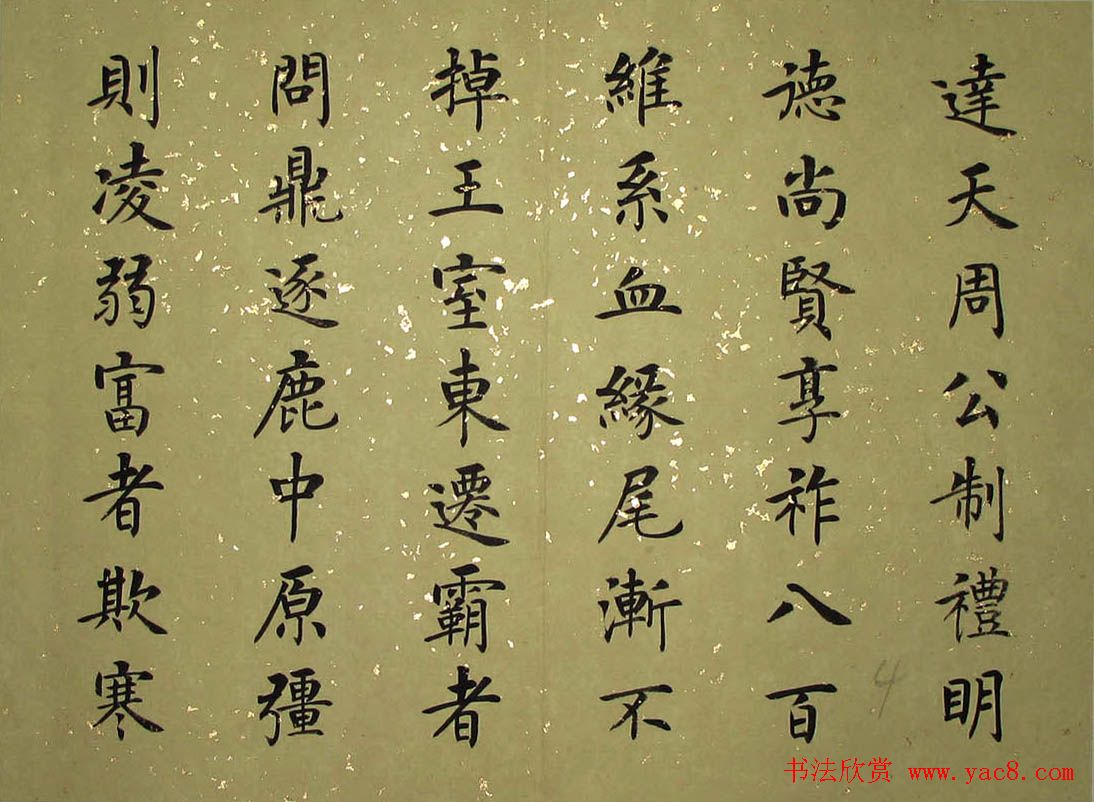 達天周公制禮明
德尚賢享祚八百
維系血緣尾漸不
掉王室東遷霸者
問鼎逐鹿中原彊
則凌弱富者欺寒
4
书法欣赏 www.yac8.com